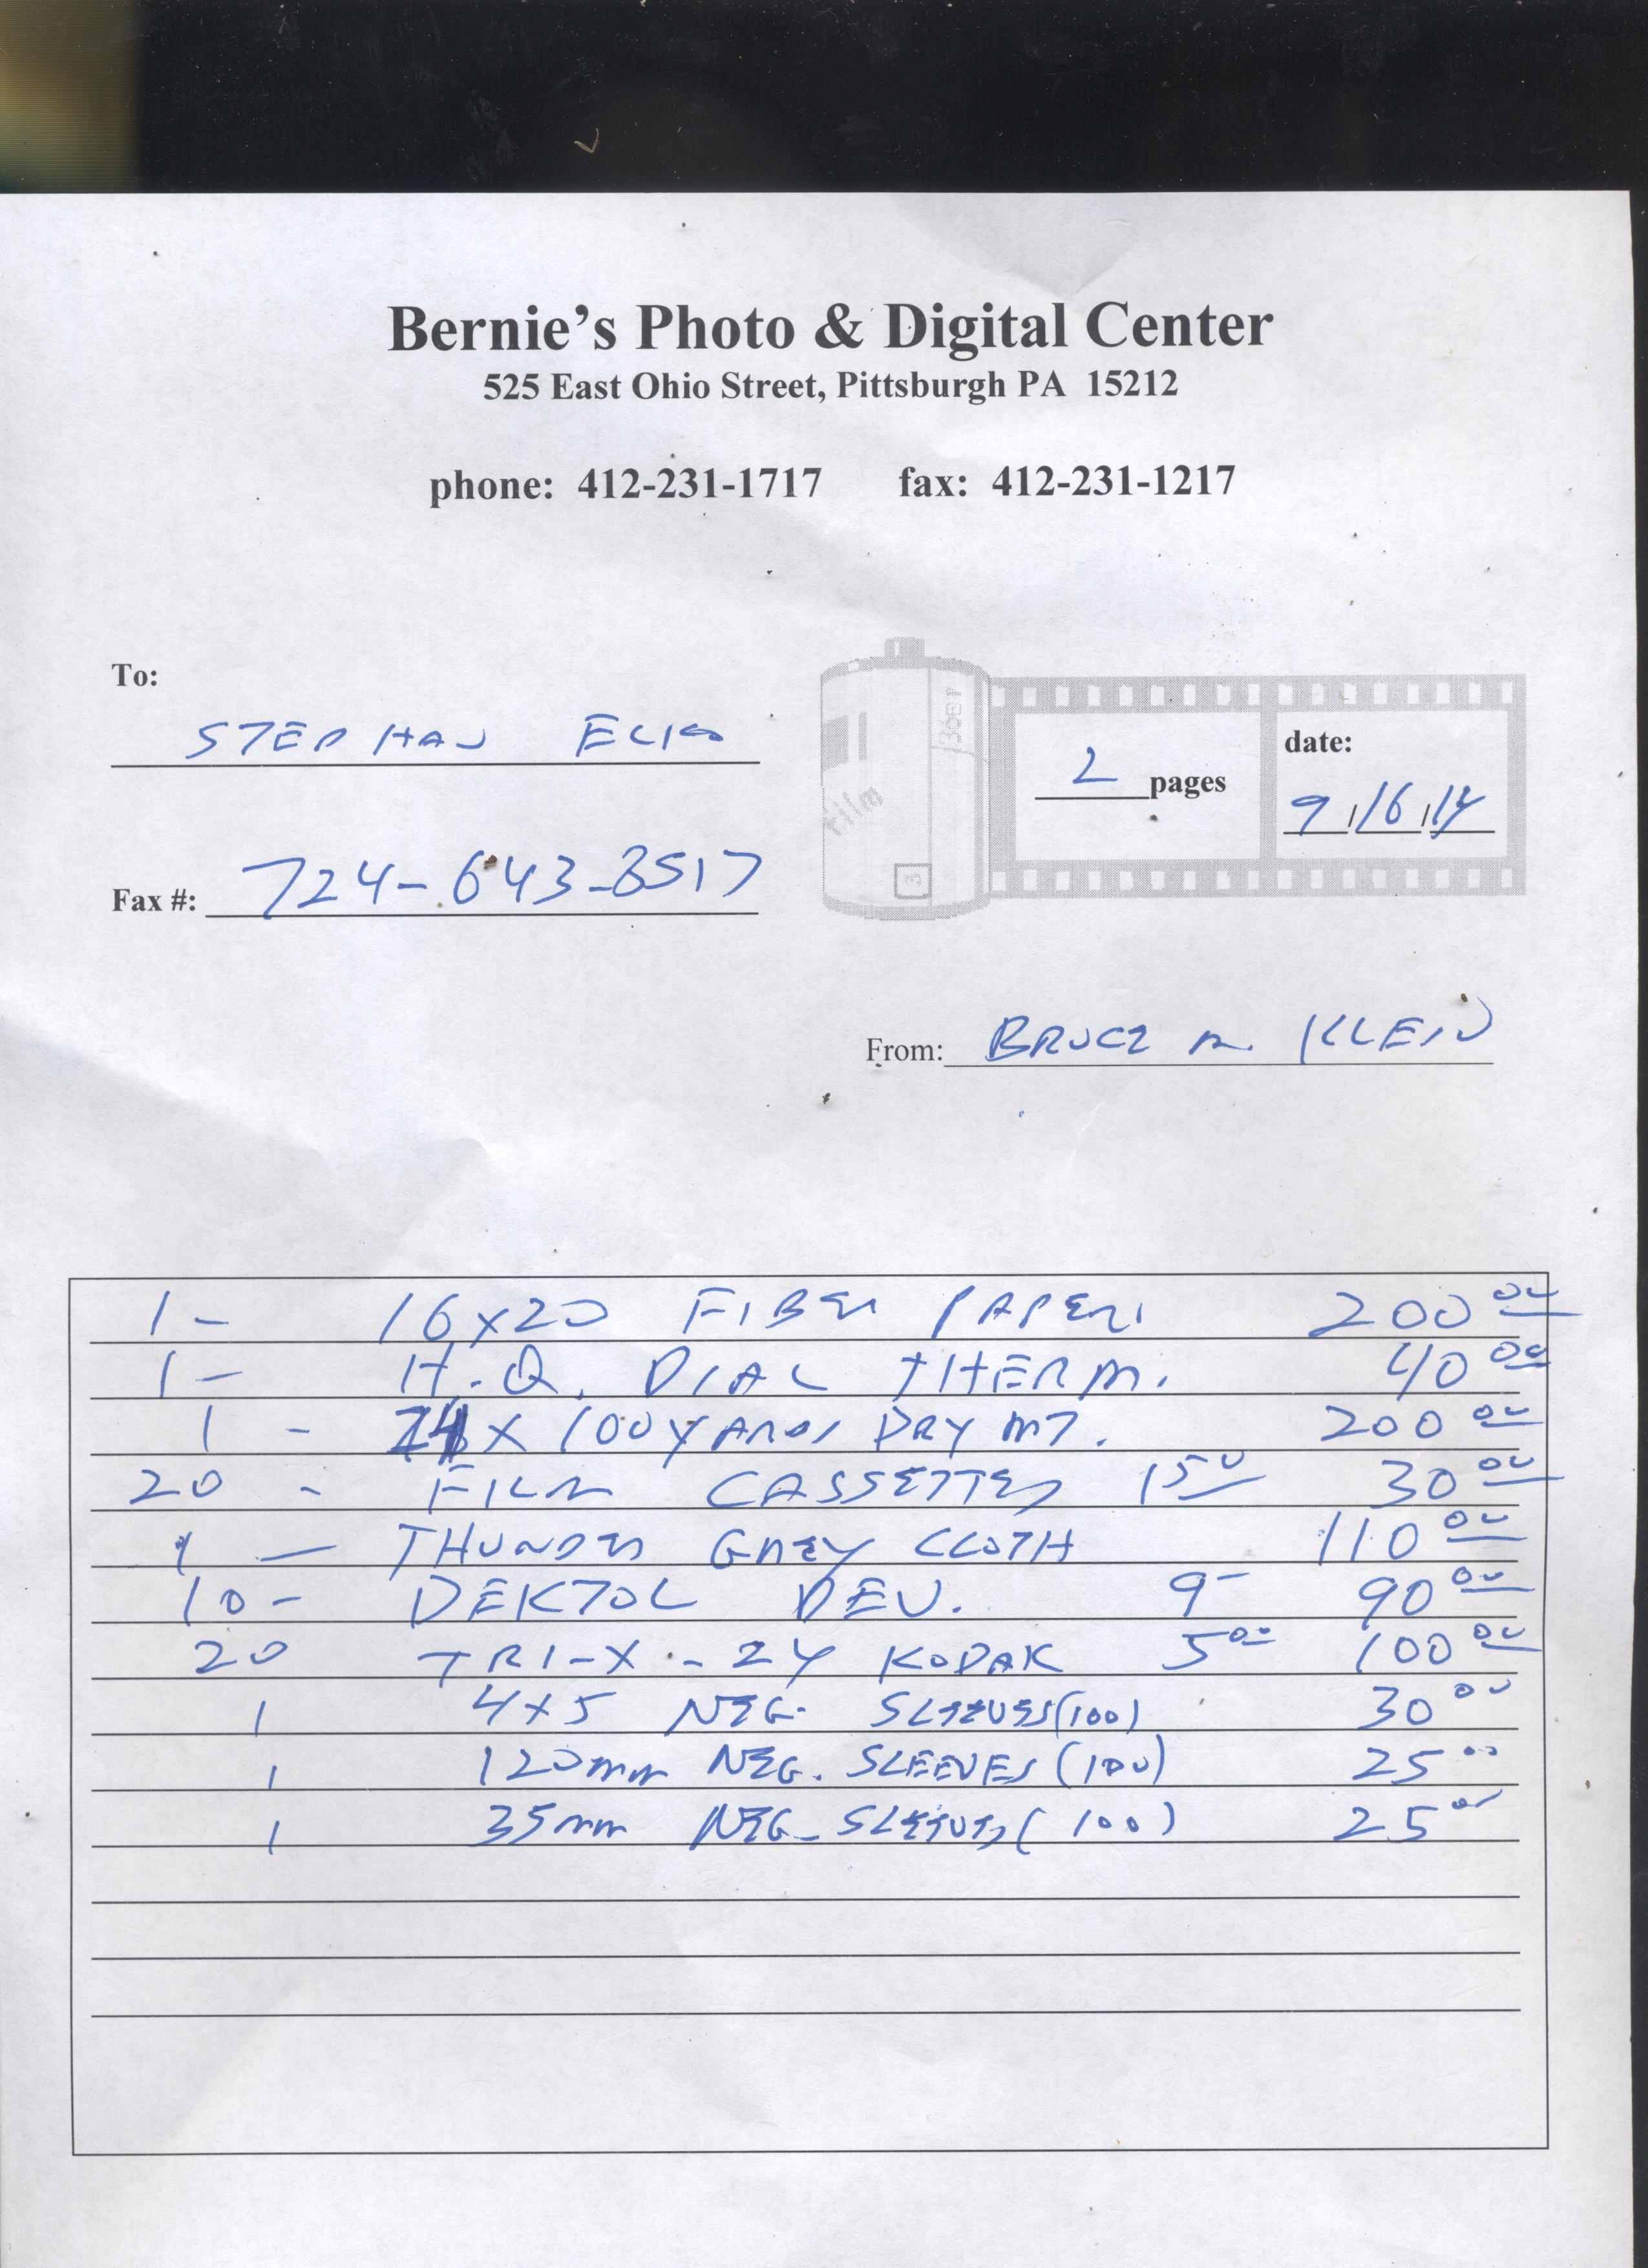 Bernie's Photo & Digital Center
525 East Ohio Street, Pittsburgh PA 15212
phone: 412-231-1717 fax: 412-231-1217
To:
STEPHAN ELIA
2 pages
date:
9/16/14
Fax #: 724-643-8517
film
From: BRUCE M. KLEIN
1 - 16x20 FIBER PAPER. 200 00
1 - H.Q. DIAL THERM. 40 00
1 - X 100 YARDS DRY MT. 200 00
20 - FILM CASSETTES 1 50 30 00
1 - THUNDER GREY CLOTH 110 00
10 - DEKTOL DEV. 9 - 90 00
20 TRI-X - 24 KODAK 5 00 100 00
1 4x5 NEG. SLEEVES (100) 30 00
1 120mm NEG. SLEEVES (100) 25 00
1 35mm NEG. SLEEVES (100) 25 00